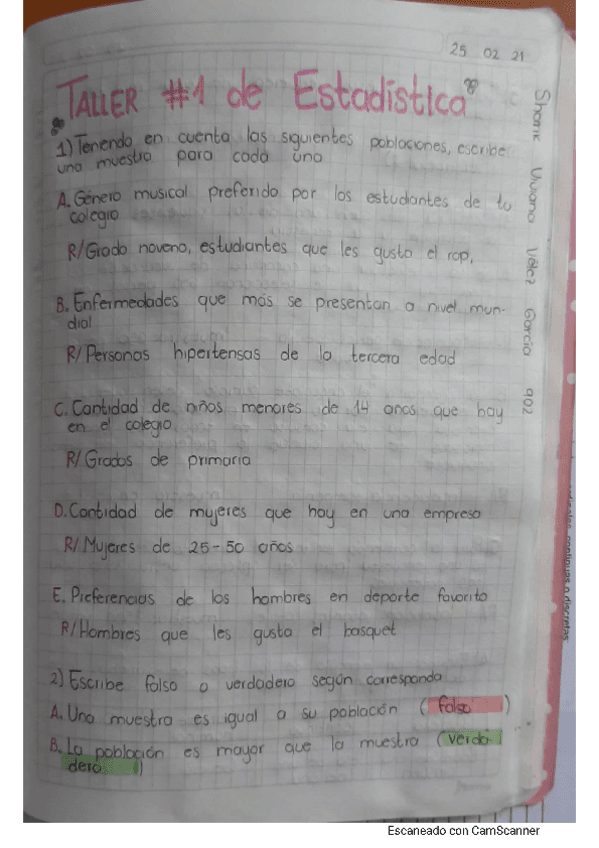 25 02 21
TALLER #1 de Estadística
1) Teniendo en cuenta las siguientes poblaciones, escribe
una muestra para cada una
A. Género musical preferido por los estudiantes de tu
colegio
R/Grado noveno, estudiantes que les gusta el rap.
B. Enfermedades que más se presentan a nivel mun-
dial
R/Personas hipertensas de la tercera edad
C. Cantidad de niños menores de 14 años que hay
en el colegio
R/Grados de primaria
D. Cantidad de mujeres que hay en una empresa
R/Mujeres de 25-50 años
E. Preferencias de los hombres en deporte favorito
R/Hombres que les gusta el basquet
2) Escribe falso o verdadero según corresponda
A. Una muestra es igual a su población (falso)
B. La población es mayor que la muestra (verda
dero)
Vélez García 902
continuas o discretas
Escaneado con CamScanner